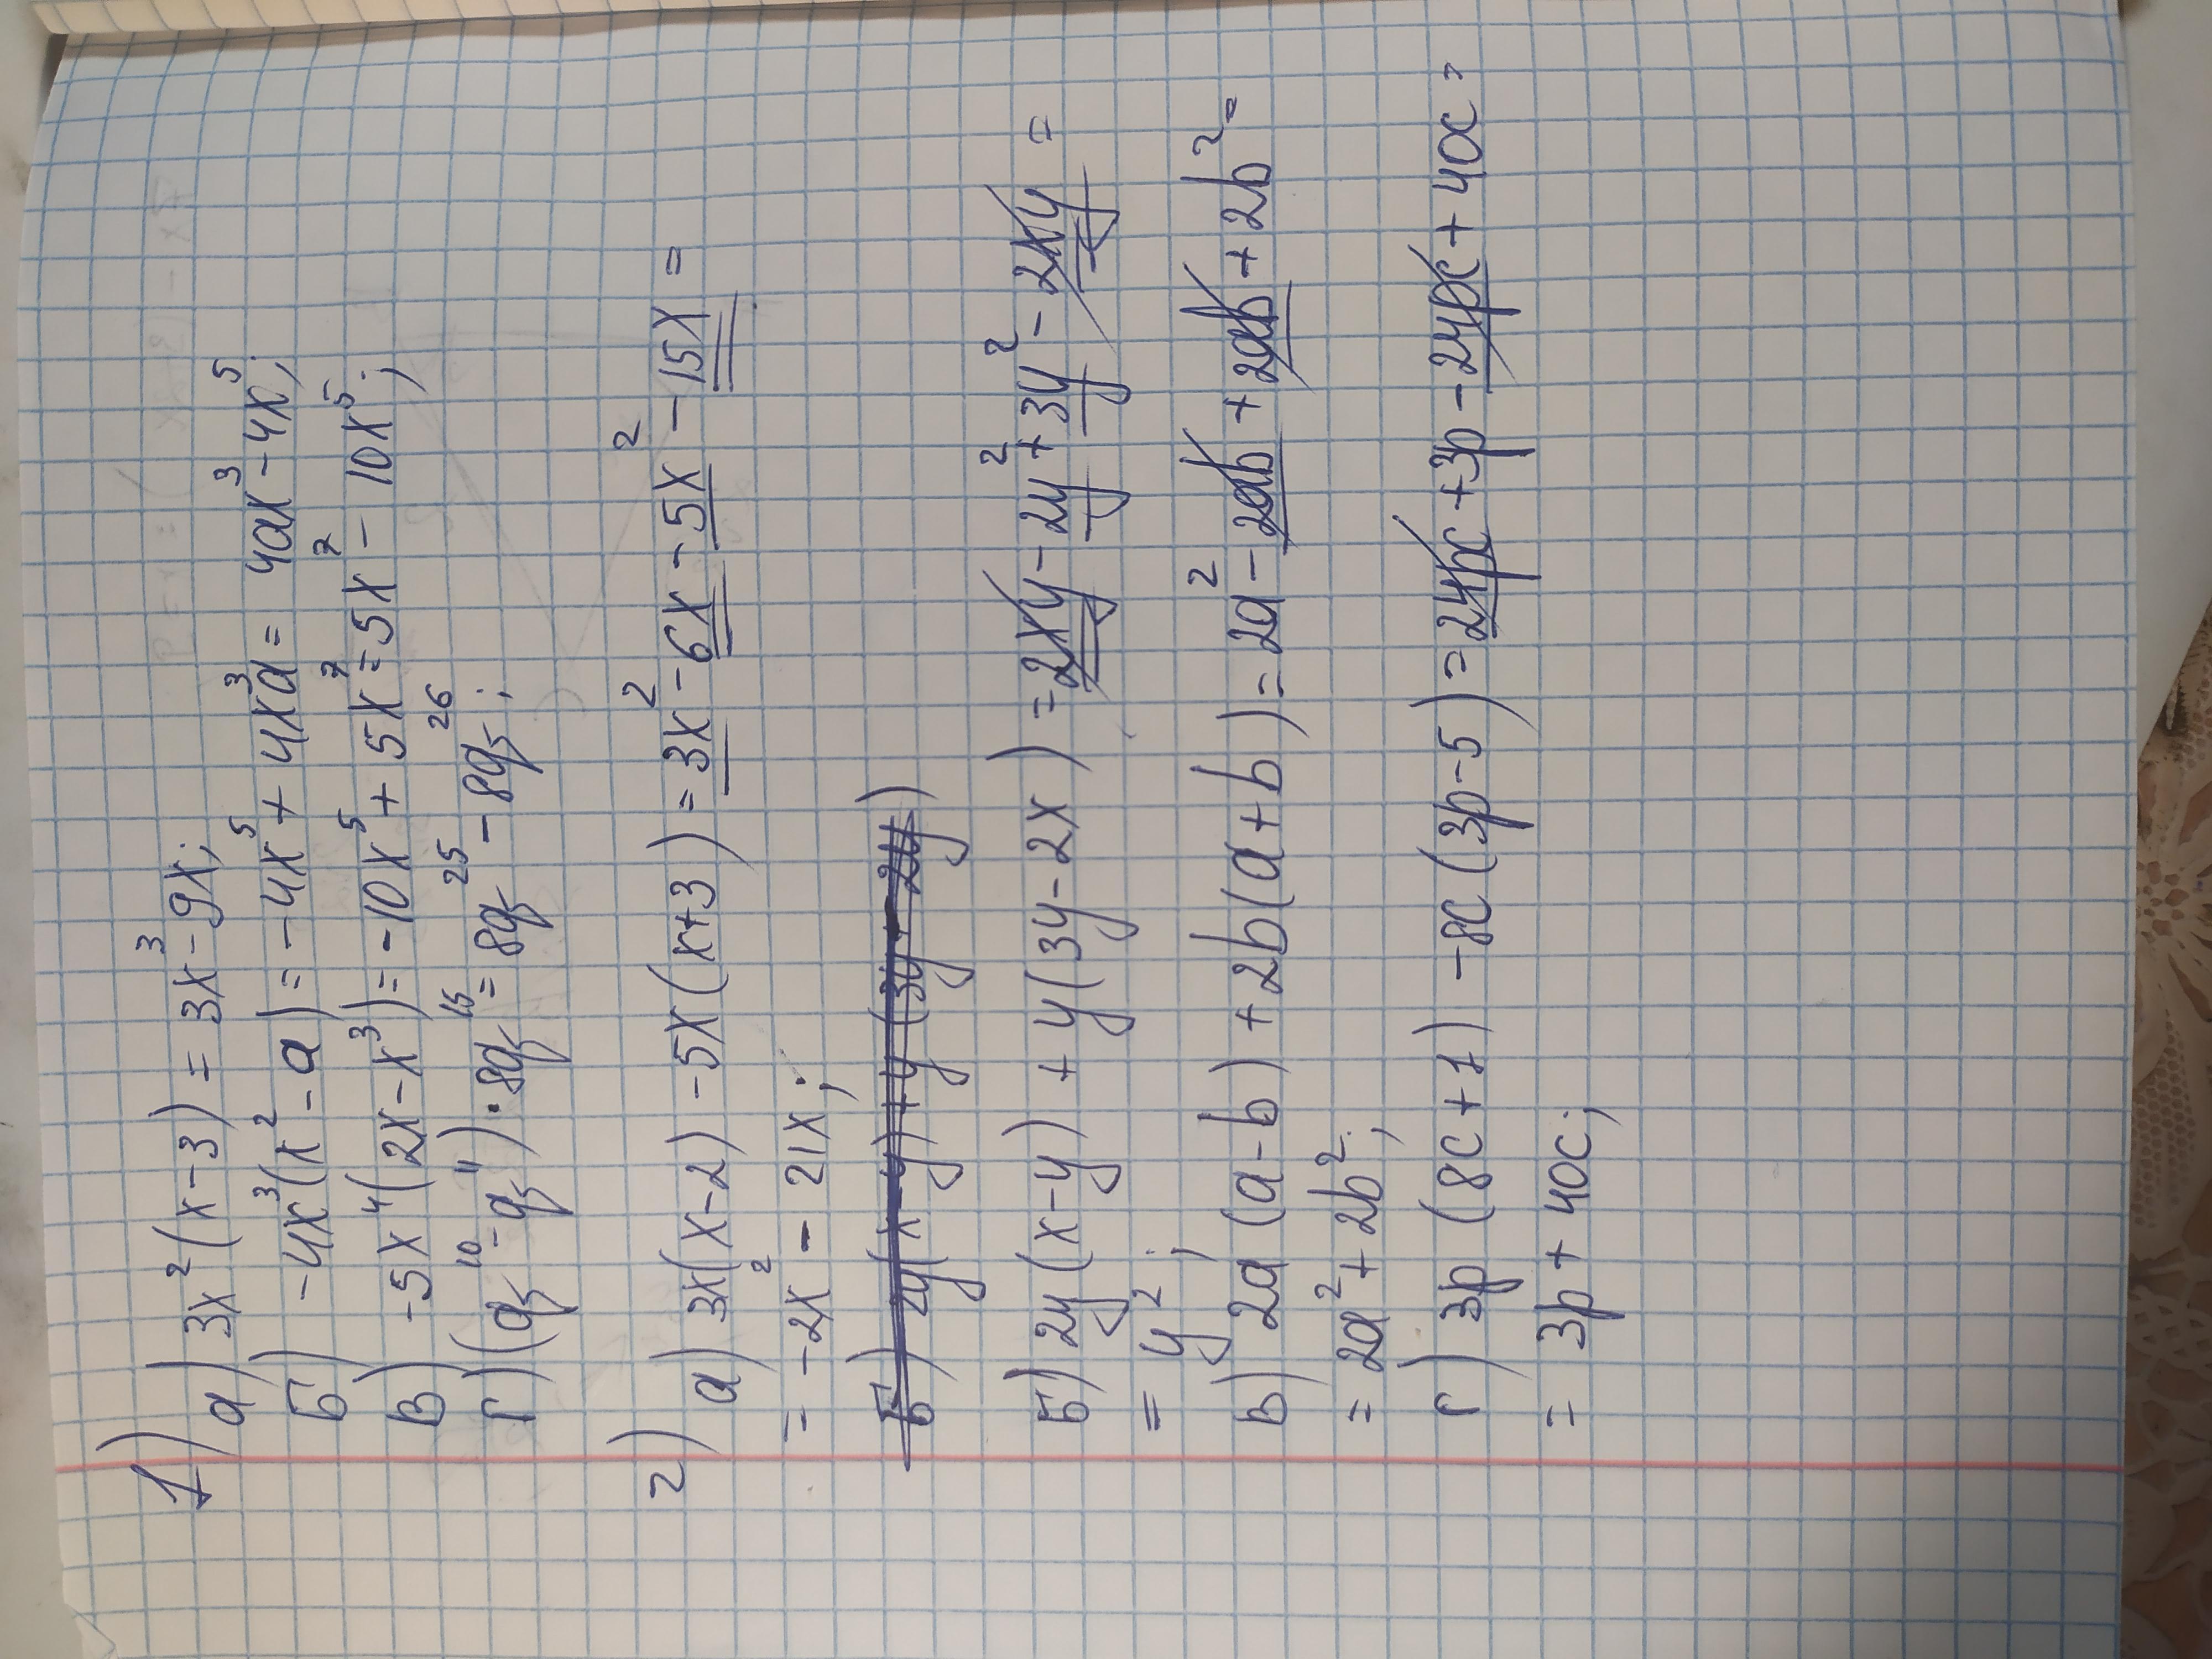 1)
а) 3x²(x-3) = 3x³-9x;
Б) -4x³(x²-a) = -4x⁵ + 4x³a = 4ax³ - 4x⁵;
В) -5x⁴(2x-x³) = -10x⁵ + 5x⁷ = 5x⁷ - 10x⁵;
Г) (q¹⁰-q⁴)·8q¹⁵ = 8q²⁵ - 8q²⁶;
2)
а) 3x(x-2) -5x(x+3) = 3x² - 6x - 5x² - 15x =
= -2x² - 21x;
Б) 2y(x-y) + y(3y-2x)
Б) 2y(x-y) + y(3y-2x) = 2xy - 2y² + 3y² - 2xy =
= y²;
В) 2a(a-b) + 2b(a+b) = 2a² - 2ab + 2ab + 2b² =
= 2a² + 2b²;
Г) 3p(8c+1) -8c(3p-5) = 24pc + 3p - 24pc + 40c =
= 3p + 40c;